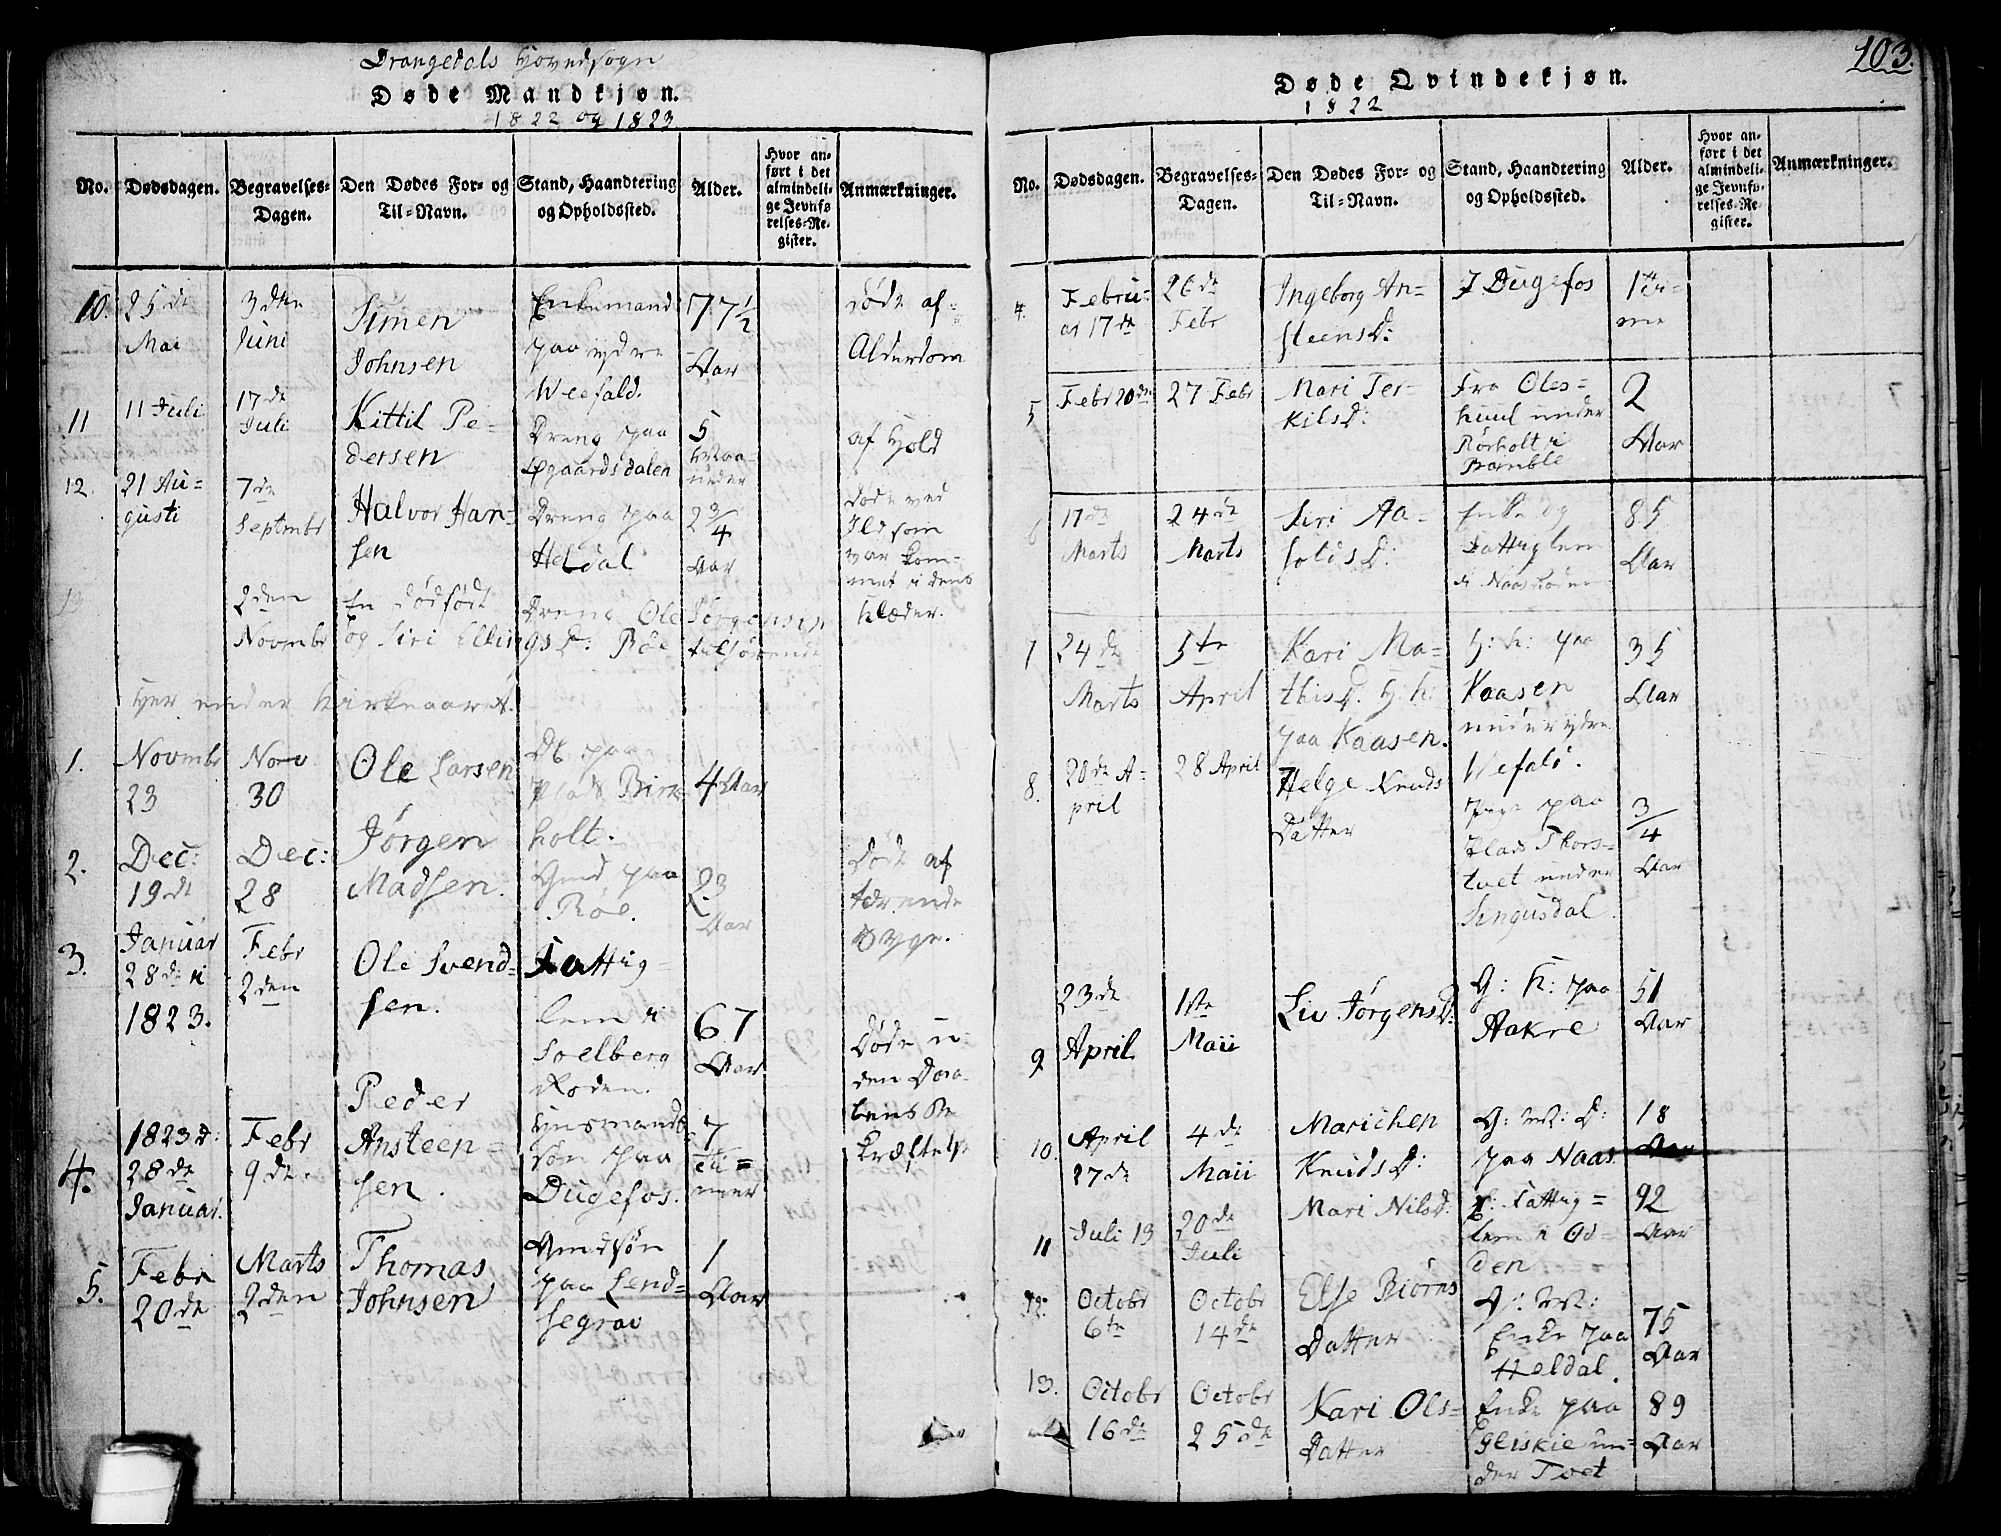 Drangedals Hovedsogn
Døde Mandkjøn.
1822 og 1823
No. Dødsdagen. Begravelses-Dagen. Den Dødes For- og Til-Navn. Stand, Haandtering og Opholdssted. Alder. Hvor anført i det almindelige Jevnførelses-Register. Anmærkninger.
10. 25de Mai
3die Juni
Simen Johnsen
Enkemand paa ydre Weefald.
77½ Aar
Døde af Alderdom
11 11 Juli
17de Juli
Kittil Pedersen
Dreng paa Øgaardsdalen
5
af Hold
12. 21 Augusti
7de Septembr
Halvor Hansen
Dreng paa Heldal
2 3/4 Aar
Døde ved Ild som var kommet i dens Klæder.
13
2den Novmbr
En dødfødt Dreng Ole Jørgensen
og Siri Ellingsd: Röe tilhörende
Her ender Kirkeaaret.
1. Novmbr 23
Nov 30
Ole Larsen
paa Birkholt.
4 Aar
2. Dec: 19de
Dec: 28
Jørgen Madsen.
Gmd paa Röe.
23 Aar
Døde af tærende Syge.
3. Januar 28de i 1823.
Febr 2den
Ole Svendsen.
Fattiglem i Soelberg Roden.
67 Aar
Døde uden Daabens Bekræftelse
4. 1823 d: 28de Januar.
Febr 9de.
Peder Ansteensen.
Huusmands Søn paa Dugefos.
7 Timer
5. Febr 20de
Marts 2den
Thomas Johnsen
Gmdsøn paa Lendsegrav
1 Aar
103.
Døde Qvindekjøn.
1822
No. Dødsdagen. Begravelses-Dagen. Den Dødes For- og Til-Navn. Stand, Haandtering og Opholdssted. Alder. Hvor anført i det almindelige Jevnførelses-Register. Anmærkninger.
4. Februar 17de
26de Febr
Ingeborg Ansteensd:
Dugefos
5 Febr 20de
27 Febr
Mari Terkilsd:
fra Oleshuul under Rørholt i Bamble
2 Aar
6 17de Marts
24de Marts
Siri Aasoldsd:
Enke og Fattiglem
85 Aar
7 24de Marts
5te April
Kari Mathisd. H: K: paa Kaasen.
H: K: paa Kaasen under ydre Wefald.
35 Aar
8. 20de April
28 April
Helge Knuds Datter
Pige paa Plads Thorstvet under Sengusdal.
3/4 Aar
9 23de April
1ste Maii
Liv Jørgensd:
G: K: paa Aakre
51 Aar
10. April 27de
4de Maii
Marichen Knudsd:
G: M: D: paa Naas
18 Aar
11 Juli 13
20de Juli
Mari Nilsd:
Fattiglem i Oden
92 Aar
12. Octobr 6te
Octobr 14de
Else Biörns Datter
G: M: Enke paa Heldal.
75 Aar
13. Octobr 16de
Octobr 25de
Kari Ols-Datter
Enke paa Gliskie under Tvet
89 Aar